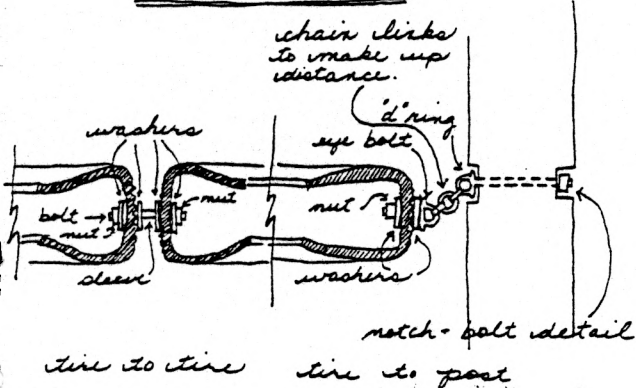 chain links
to make up
distance.
"d" ring
washers
eye bolt
nut
nut
bolt
nut
sleeve
washers
notch-bolt detail
tire to tire
tire to post